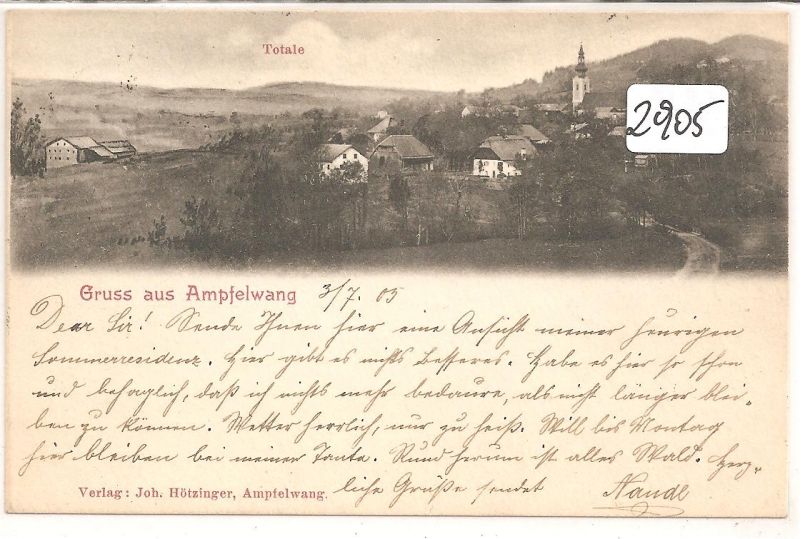 Totale
2905
Gruss aus Ampfelwang 3/7. 05
Dear Sir! Sende Ihnen hier eine Ansicht meiner heurigen
Sommerresidenz. Hier gibt es nichts Besseres. Habe es hier so schön
und behaglich, daß ich nichts mehr bedaure, als nicht länger blei-
ben zu können. Wetter herrlich, nur zu heiß. Will bis Montag
hier bleiben bei meiner Tante. Rund herum ist alles Wald. Herz-
liche Grüße sendet
Verlag: Joh. Hötzinger, Ampfelwang.